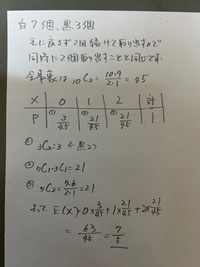 白7個、黒3個
元に戻さず2回続けて取り出すので
同時に2個取り出すことと同じです。
全事象は 10C2 = 10.9/2.1 = 45
X 0 1 2 計
P ① 3/45 ② 21/45 ③ 21/45 1
① 3C2=3 (黒2)
② 7C1・3C1=21
③ 7C2=7.6/2.1=21
よって E(X)=0×3/45+1×21/45+2×21/45
= 63/45 = 7/5